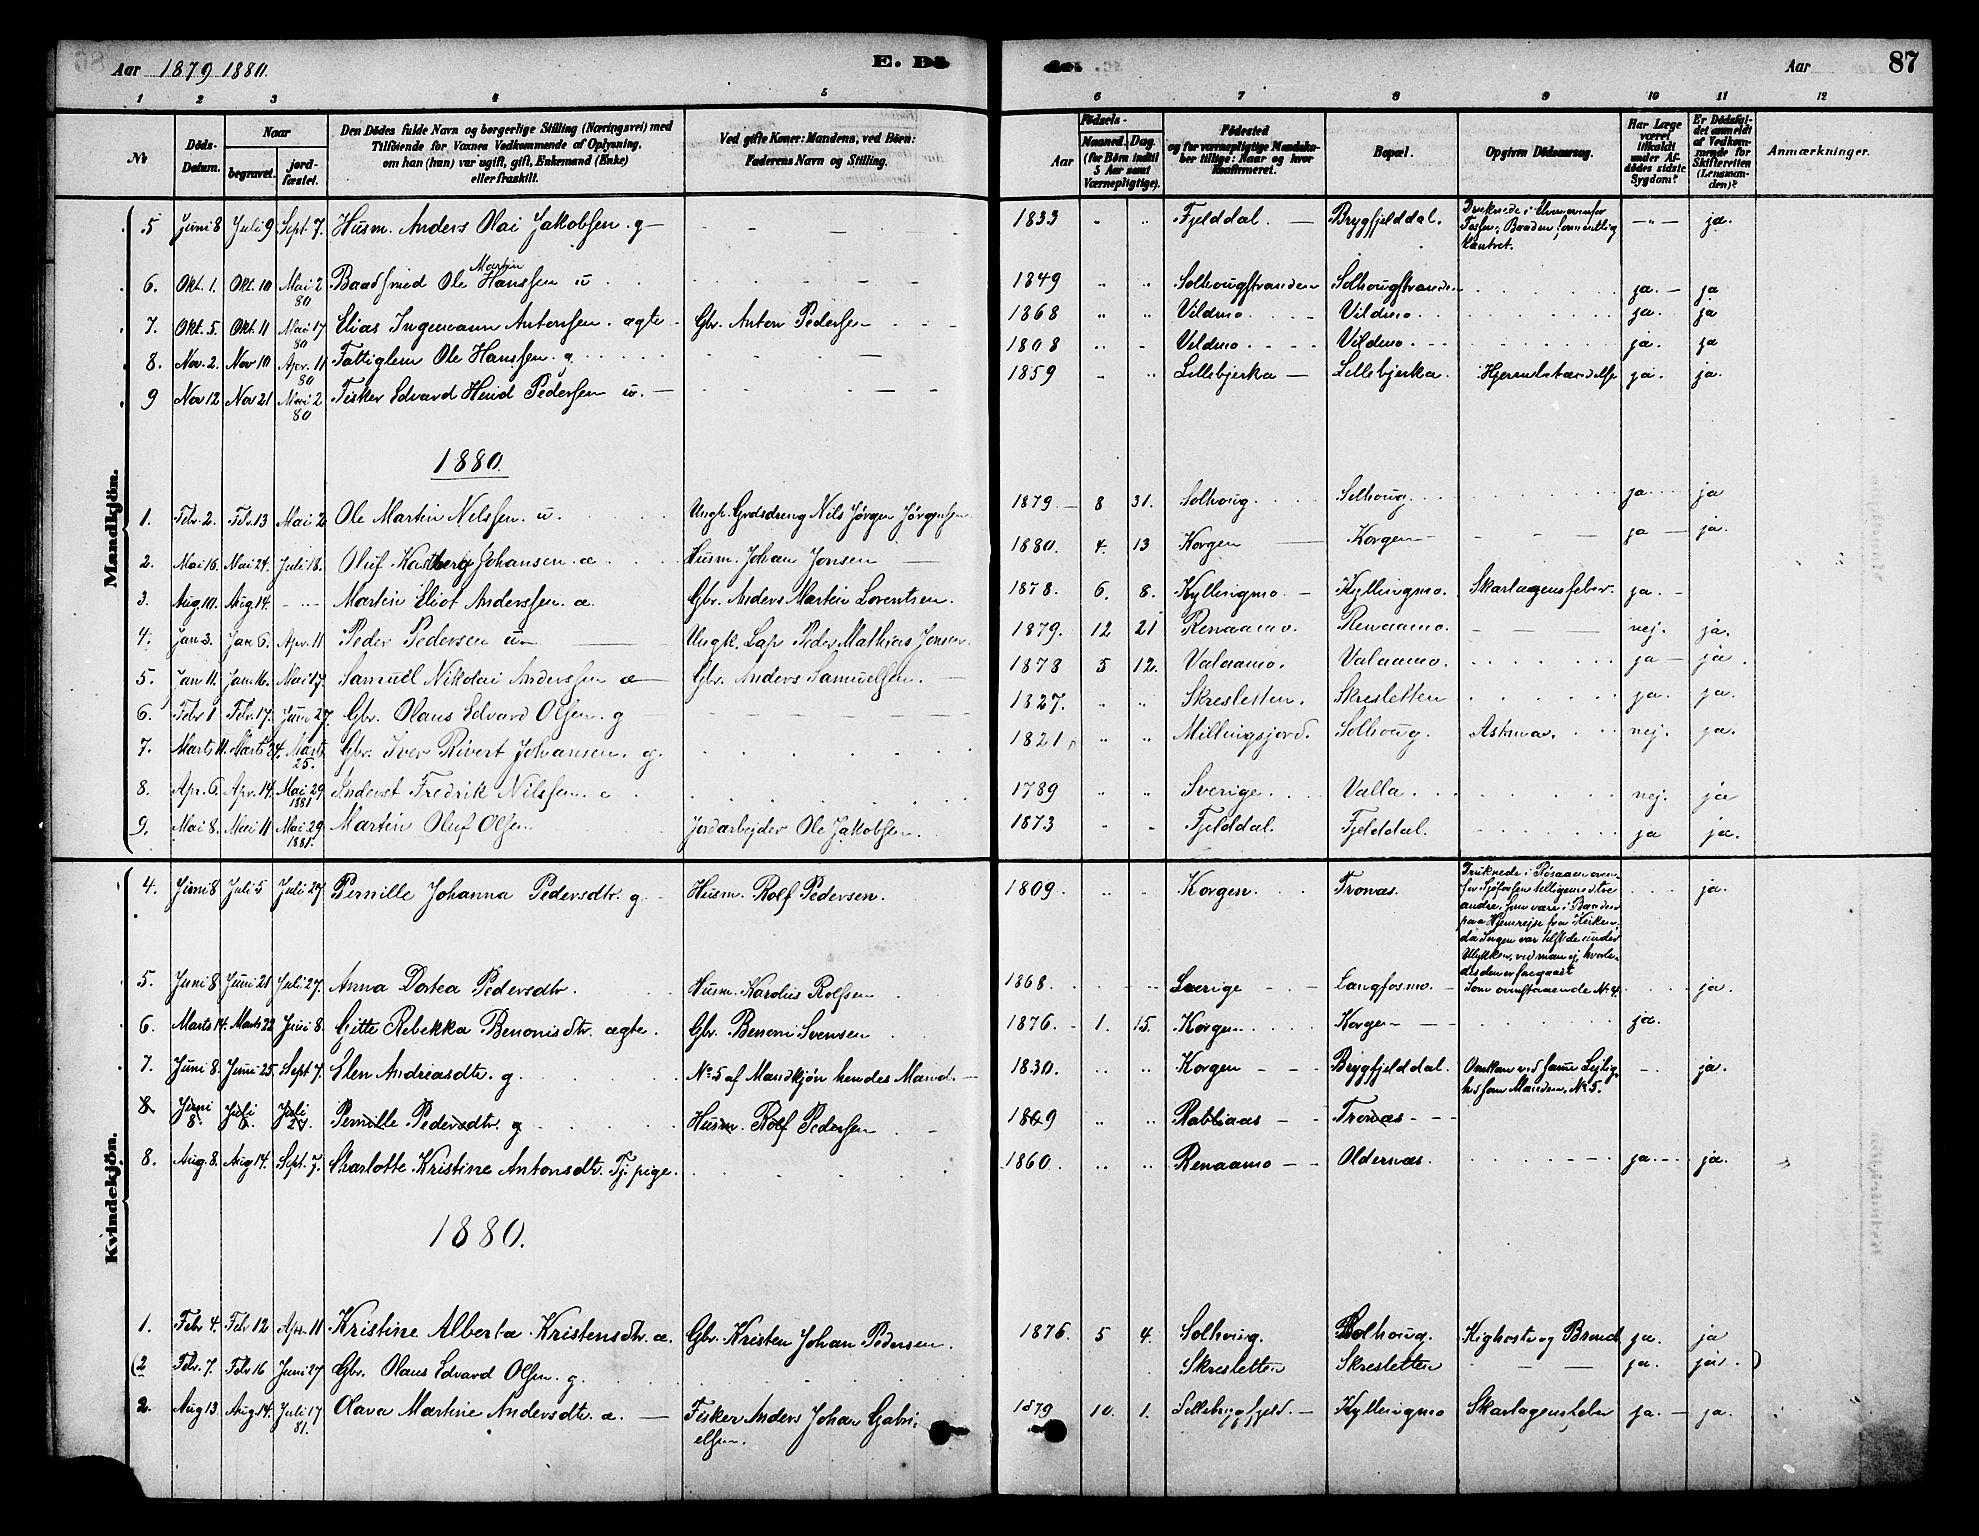 Aar 1879 1880. E. Dö
Aar 87
1 2 3 4 5 6 7 8 9 10 11 12
No
Döds-Datum.
Naar begravet. jordfæstet.
Den Dödes fulde Navn og borgerlige Stilling (Næringsvei) med Tilföiende for Voxnes Vedkommende af Oplysning, om han (hun) var ugift, gift, Enkemand (Enke) eller fraskilt.
Ved gifte Koner: Mandens, ved Börn: Faderens Navn og Stilling.
Födsels- Aar Maaned. Dag. (for Börn indtil 5 Aar samt Værnepligtige).
Födested og for værnepligtige Mandskaber tillige: Naar og hvor Konfirmeret.
Bopæl.
Opgiven Dödsaarsag.
Har Læge været tilkaldt under Afdödes sidste Sygdom?
Er Dödsfaldet anmeldt af Vedkommende for Skifteretten (Lensmanden)?
Anmærkninger.
Mandkjön.
5 Juni 8 Juli 9 Sept 7. Husm. Anders Olai Jakobsen. g 1833 Fjelddal. Brygfjelddal. ja.
6. Okt. 1. Okt. 10 Mai 2 80 Baadsmed Ole Martin Hanssen u 1849 Solhougstranden Solhougstranden ja. ja
7. Okt. 5. Okt. 11 Mai 17 80 Elias Ingemann Antonsen. ægte Gbr. Anton Pedersen 1868 Vildmo. Vildmo. ja. ja
8. Nov. 2. Nov 10 Apr. 11 80 Fattiglem Ole Hanssen. g 1808 Vildmo. Vildmo. ja. ja
9 Nov 12 Nov 21 Mai 2 80 Fisker Edvard Heind Pedersen u. 1859 Lillebjerka Lillebjerka. ja. ja.
1880.
1. Febr. 2. Febr. 13 Mai 2 Ole Martin Nilssen. u. Ungk. Grdsdreng Nils Jørgen Jørgensen 1879 8 31. Solhoug. Solhoug. ja ja
2. Mai 16. Mai 24. Juli 18. Oluf Johansen. æ Husm. Johan Jonsen 1880. 4. 13 Korgen Korgen ja ja.
3. Aug 10. Aug 14. Martin Eliot Anderssen. æ. Gbr. Anders Martin Lorentsen. 1878. 6. 8. Kyllingmo. Kyllingmo. Skarlagensfeber. ja.
4. Jan 3. Jan 6. Apr. 11 Peder Pedersen u Ungk. Lap Peder Mathias Jonsen. 1879. 12 21 Renaamo. Renaamo. nej. ja.
5. Jan 11. Jan 16. Mai 17. Samuel Nikolai Anderssen æ Gbr. Anders Samuelsen. 1878 5 12. Valaamo. Valaamo. ja ja.
6. Febr 1 Febr. 17. Juni 27. Gbr. Olaus Edvard Olsen. g 1827. Skresletten. Skresletten ja. ja.
7. Marts 11. Marts 24. Marts 25. Gbr. Iver Rivert Johansen. g. 1821 Millingsjord. Solhoug. Astma. nej. ja.
8. Apr. 6. Apr. 14. Mai 29 1881 Inderst Fredrik Nilssen. e 1789 Sverige. Valla. nej. ja
9. Mai 8. Mai 11 Mai 29 1881. Martin Oluf Olsen Jordarbejder Ole Jakobsen. 1873 Fjelddal. Fjelddal. ja ja.
Kvindekjön.
4. Juni 8 Juli 5 Juli 27 Pernille Johanna Pedersdtr. g Husm. Rolf Pedersen. 1809. Korgen. Tronæs. ja.
5. Juni 8 Juni 21 Juli 27. Anna Dortea Pedersdtr. Husm. Karolius Rolfsen 1868. Sverige Langfosmo. Som ovenstaaende No. 4. ja.
6. Marts 14. Marts 22 Juni 8. Gitte Rebekka Benonisdtr. ægte. Gbr. Benoni Svensen 1876. 1. 15. Korgen Korgen ja.
7. Juni 8. Juni 25. Sept 7. Elen Andreasdtr. g. No. 5 af Mandkjön hendes Mand. 1830. Korgen Brygfjelddal. Omkom ved samme Lejlighed som Manden. No. 5. ja.
8 Juni 8. Juli 6. Juli 27. Pernille Pedersdtr. g Husm. Rolf Pedersen 1809 Tronæs
8. Aug 8. Aug 14. Sept. 7. Charlotte Kristine Antonsdtr. Tj. pige. 1860. Renaamo Oldernæs. ja. ja.
1880.
1. Febr 4. Febr 12 Apr. 11 Kristine Alberta Kristensdtr. æ. Gbr. Kristen Johan Pedersen. 1876. 5 4. Solhoug. Solhoug. Kighoste og Brand ja. ja
(2 Febr. 7. Febr 16 Juni 27 Gbr. Olaus Edvard Olsen. g. Skresletten Skresletten ja. ja. )
2. Aug 13. Aug 14. Juli 17 81. Olava Martine Andersdtr. æ. Fisker Anders Johan Gabrielsen. 1879 10. 1. Kyllingmo Skarlagensfeber ja. ja.